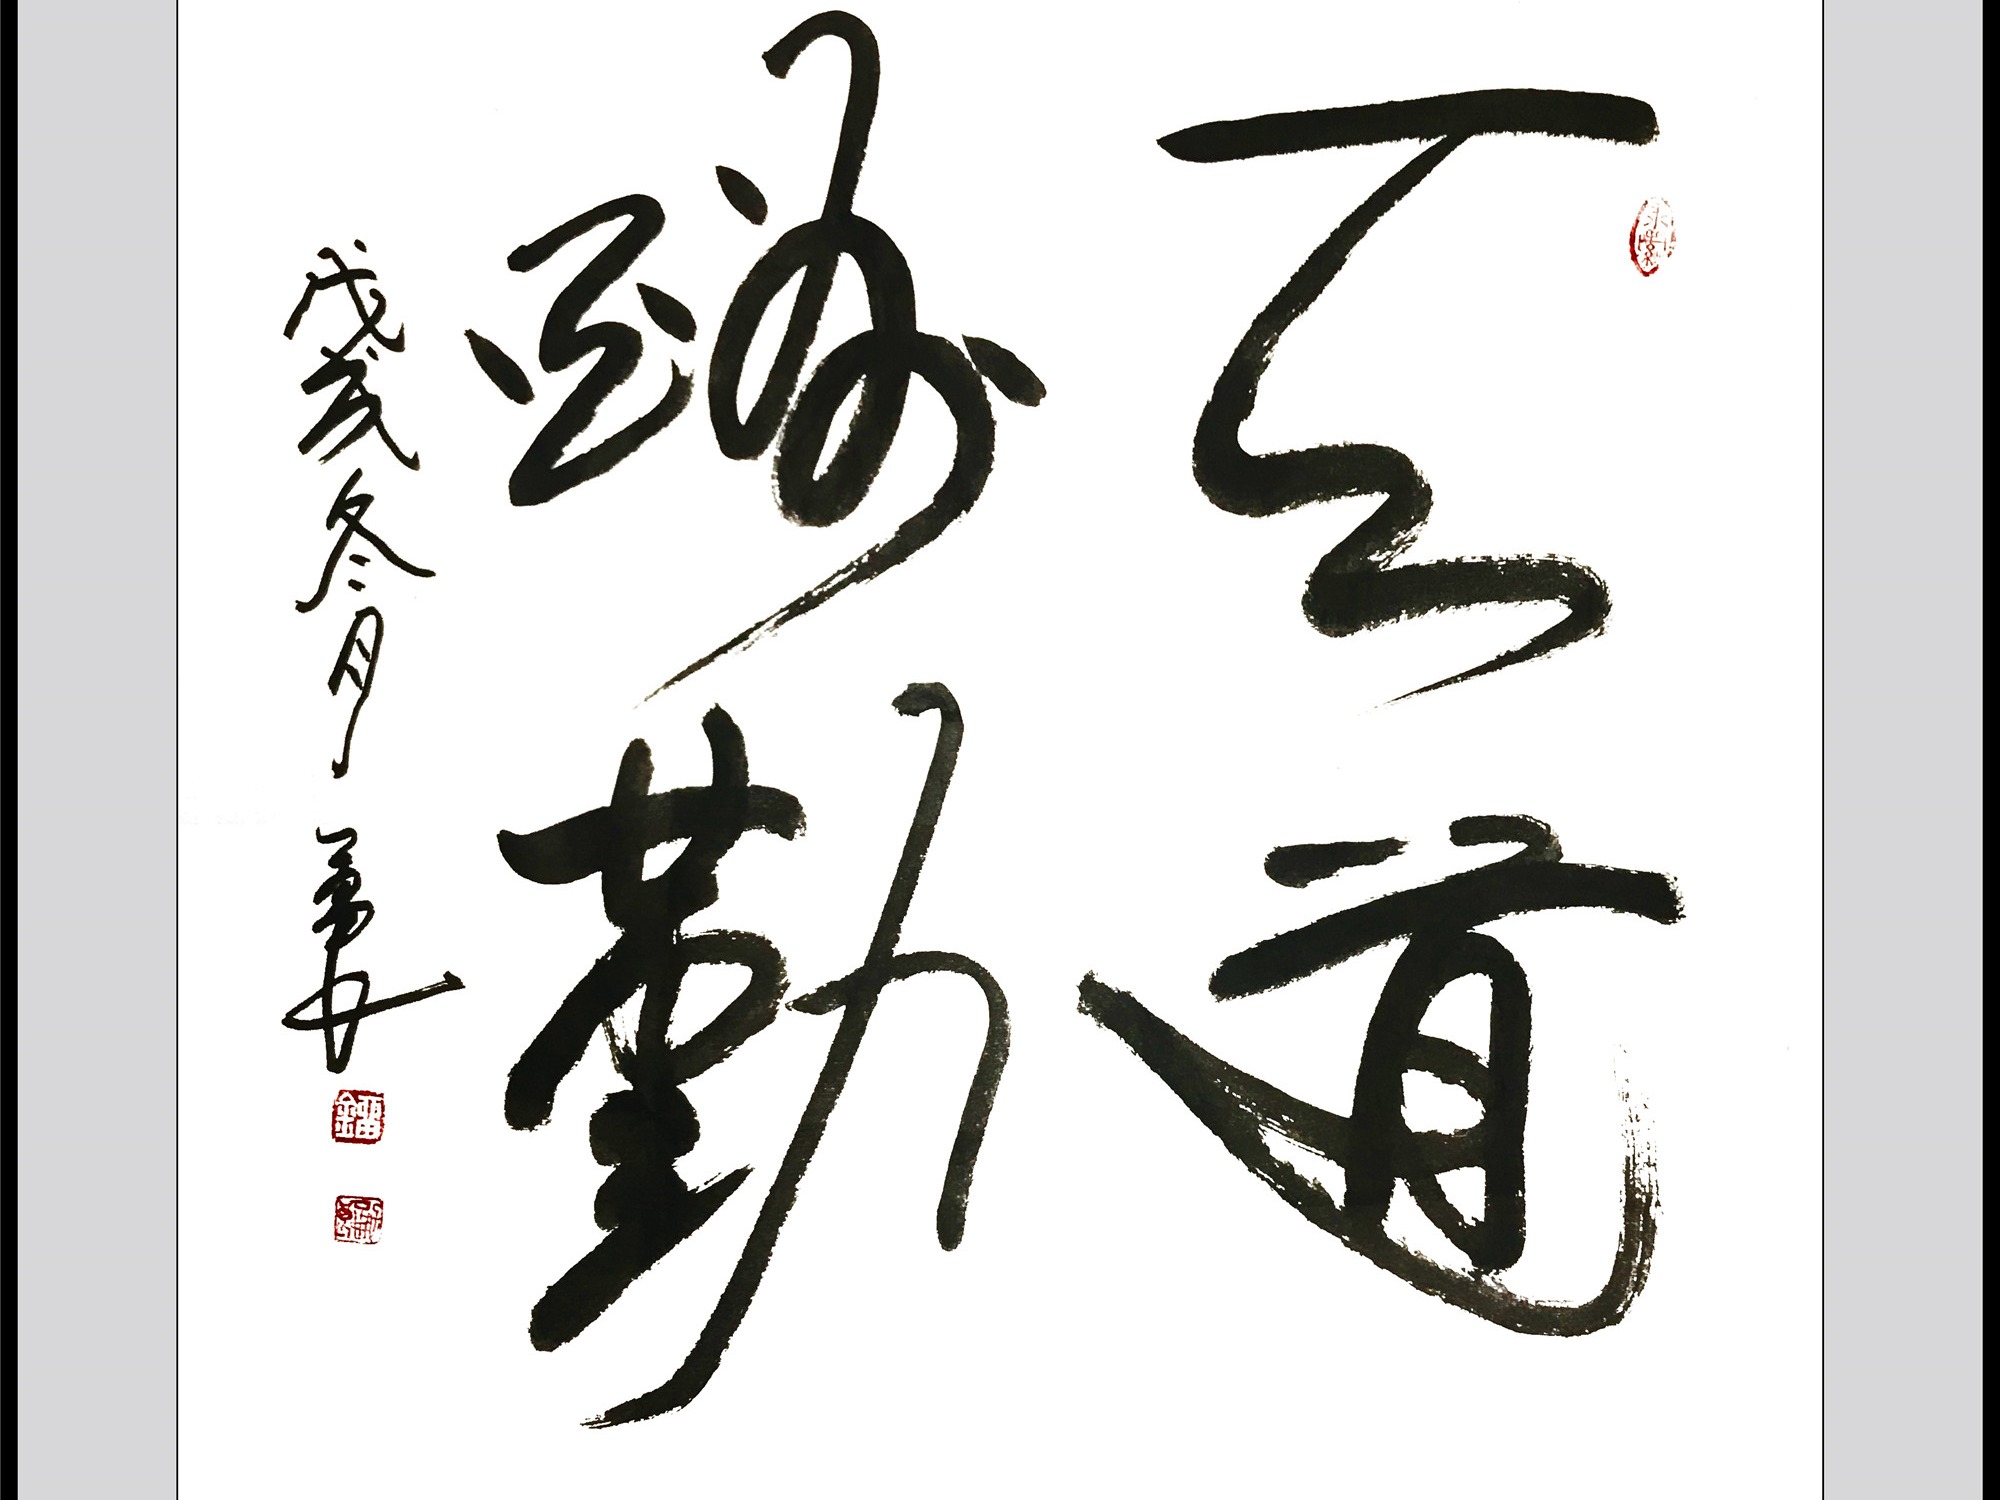 天道
酬勤
戊戌冬月